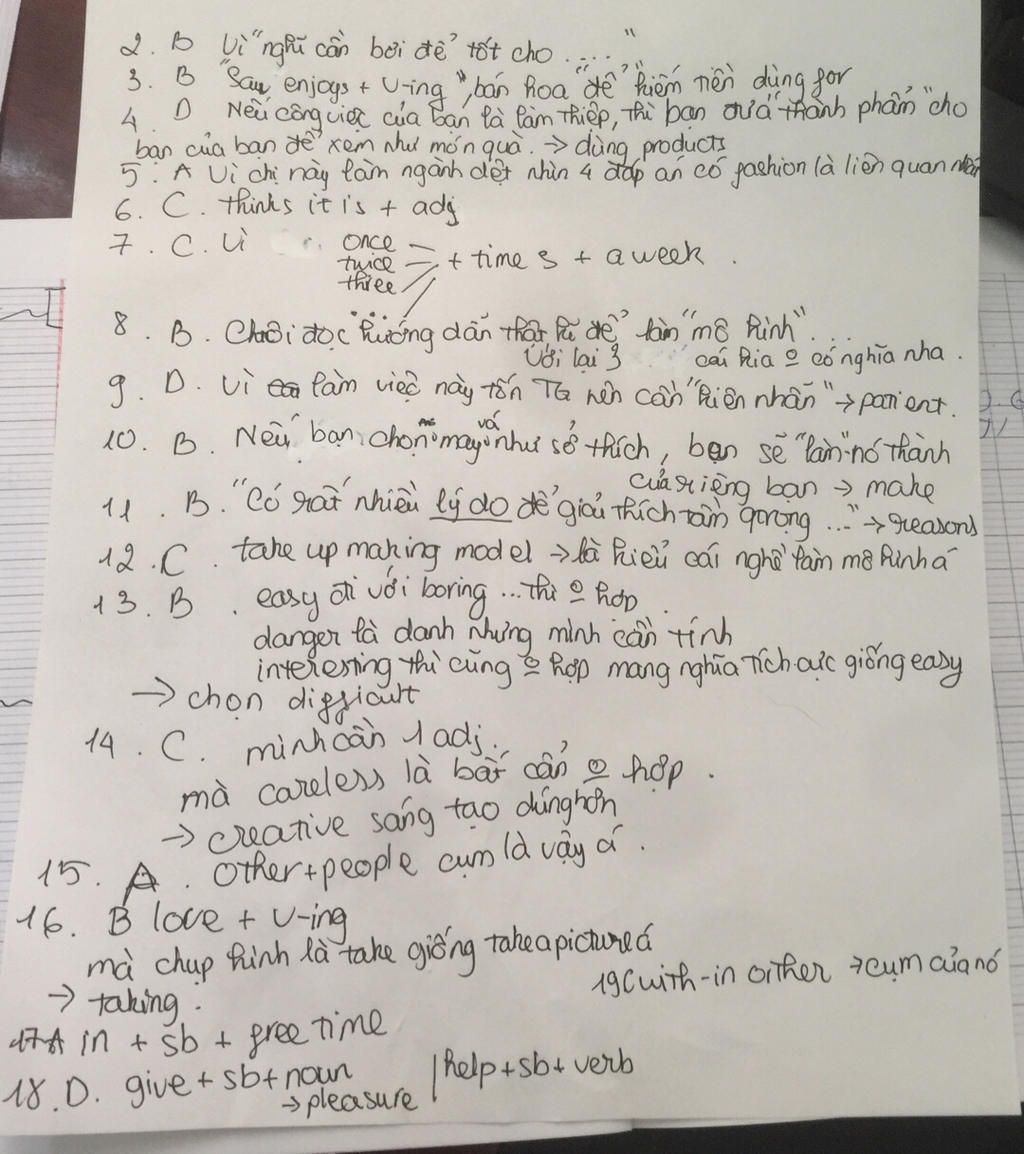 2. B Vì "nghĩ cần bơi để tốt cho ....."
3. B "Say enjoys + V-ing", bán hoa "để" kiếm tiền dùng for
4. D Nếu công việc của bạn là làm thiệp, thì bạn đưa "thành phẩm" cho
bạn của bạn để xem như món quà. → dùng products
5. A Vì chị này làm ngành dệt nhìn 4 đáp án có fashion là liên quan nhất
6. C. thinks it is + adj
7. C. Vì once
twice + times + a week.
three
8. B. Chơi đọc "hướng dẫn thật kĩ để" làm "mô hình"...
Với lại 3 cái kia o có nghĩa nha.
9. D. Vì làm việc này tốn TG nên cần "kiên nhẫn" → patient.
10. B. Nếu bạn chọn may vá như sở thích, bạn sẽ "làm" nó thành
của riêng bạn → make
11. B. "Có rất nhiều lý do để giải thích tầm qrọng ..." → reasons
12. C. take up making model → là kiểu cái nghề làm mô hình á
13. B. easy đi với boring ... thì o hợp.
danger là danh nhưng mình cần tính
interesting thì cũng o hợp mang nghĩa tích cực giống easy
→ chọn difficult
14. C. mình cần 1 adj.
mà careless là bất cẩn o hợp.
→ creative sáng tạo đúng hơn
15. A. Other + people cụm là vậy á.
16. B love + V-ing
mà chụp hình là take giống take a picture á
→ taking.
19C with - in or ither → cụm của nó
17A in + sb + free time
18. D. give + sb + noun | help + sb + verb
→ pleasure